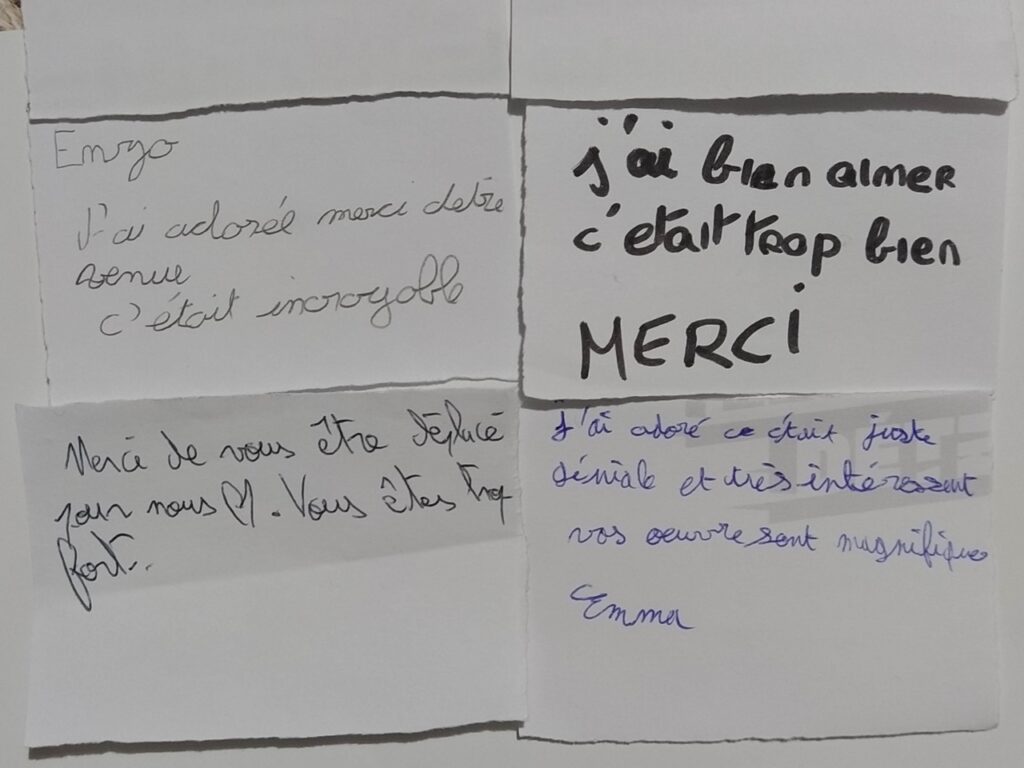 Enzo
J'ai adorée merci detre
venue
c'était incroyable
j'ai bien aimer
c'était trop bien
MERCi
Merci de vous être déplacé
pour nous. Vous êtes trop
fort.
J'ai adoré ce était juste
géniale et très intéressent
vos oeuvre sont magnifiques
Emma